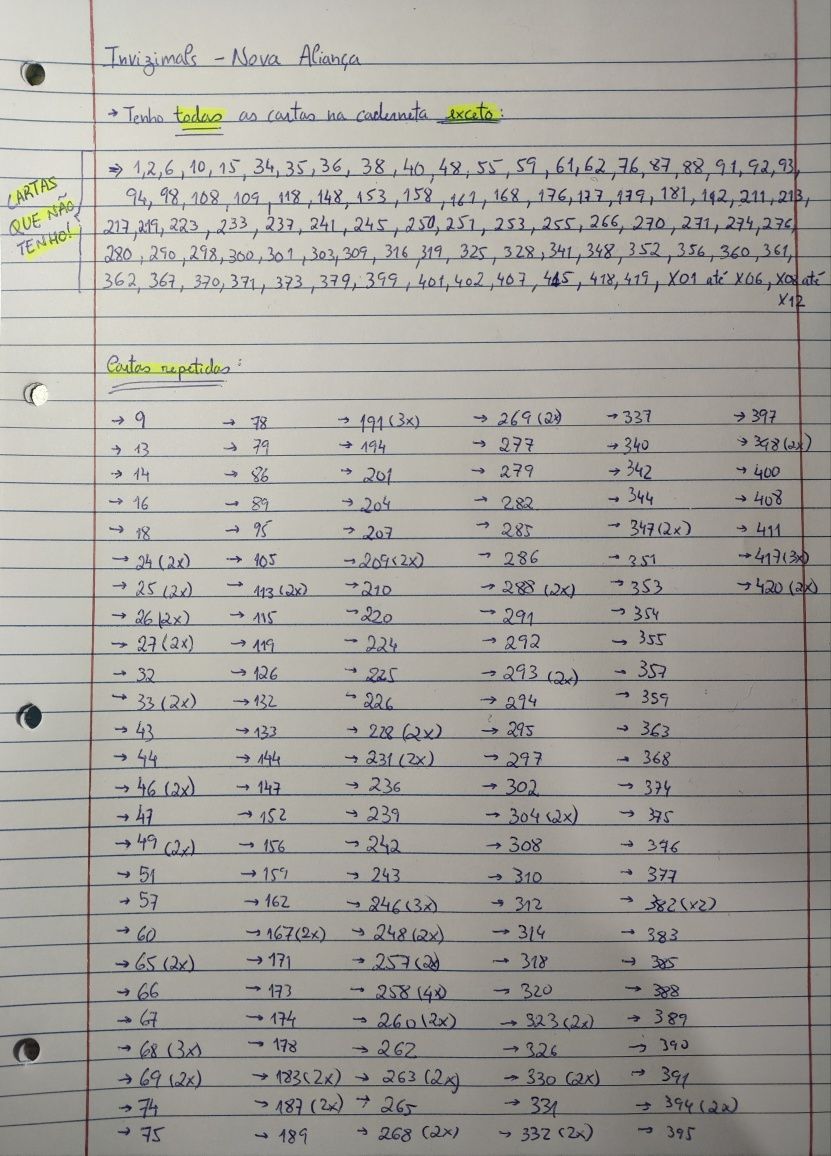 Invizimals - Nova Aliança
→ Tenho todas as cartas na caderneta exceto:
CARTAS
QUE NÃO
TENHO!
⇒ 1,2,6,10,15,34,35,36,38,40,48,55,59,61,62,76,87,88,91,92,93,
94,98,108,109,118,148,153,158,161,168,176,177,179,181,192,211,213,
217,219,223,233,237,241,245,250,251,253,255,266,270,271,274,276,
280,290,298,300,301,303,309,316,319,325,328,341,348,352,356,360,361,
362,367,370,371,373,379,399,401,402,407,415,418,419,X01 até X06,X08 até
X12
Cartas repetidas:
→ 9
→ 13
→ 14
→ 16
→ 18
→ 24 (2x)
→ 25 (2x)
→ 26 (2x)
→ 27 (2x)
→ 32
→ 33 (2x)
→ 43
→ 44
→ 46 (2x)
→ 47
→ 49 (2x)
→ 51
→ 57
→ 60
→ 65 (2x)
→ 66
→ 67
→ 68 (3x)
→ 69 (2x)
→ 74
→ 75
→ 78
→ 79
→ 86
→ 89
→ 95
→ 105
→ 113 (2x)
→ 115
→ 119
→ 126
→ 132
→ 133
→ 144
→ 147
→ 152
→ 156
→ 159
→ 162
→ 167 (2x)
→ 171
→ 173
→ 174
→ 178
→ 183 (2x)
→ 187 (2x)
→ 189
→ 191 (3x)
→ 194
→ 201
→ 204
→ 207
→ 209 (2x)
→ 210
→ 220
→ 224
→ 225
→ 226
→ 228 (2x)
→ 231 (2x)
→ 236
→ 239
→ 242
→ 243
→ 246 (3x)
→ 248 (2x)
→ 257 (2x)
→ 258 (4x)
→ 260 (2x)
→ 262
→ 263 (2x)
→ 265
→ 268 (2x)
→ 269 (2x)
→ 277
→ 279
→ 282
→ 285
→ 286
→ 288 (2x)
→ 291
→ 292
→ 293 (2x)
→ 294
→ 295
→ 297
→ 302
→ 304 (2x)
→ 308
→ 310
→ 312
→ 314
→ 318
→ 320
→ 323 (2x)
→ 326
→ 330 (2x)
→ 331
→ 332 (2x)
→ 337
→ 340
→ 342
→ 344
→ 347 (2x)
→ 351
→ 353
→ 354
→ 355
→ 357
→ 359
→ 363
→ 368
→ 374
→ 375
→ 376
→ 377
→ 382 (x2)
→ 383
→ 385
→ 388
→ 389
→ 390
→ 391
→ 394 (2x)
→ 395
→ 397
→ 398 (2x)
→ 400
→ 408
→ 411
→ 417 (3x)
→ 420 (2x)